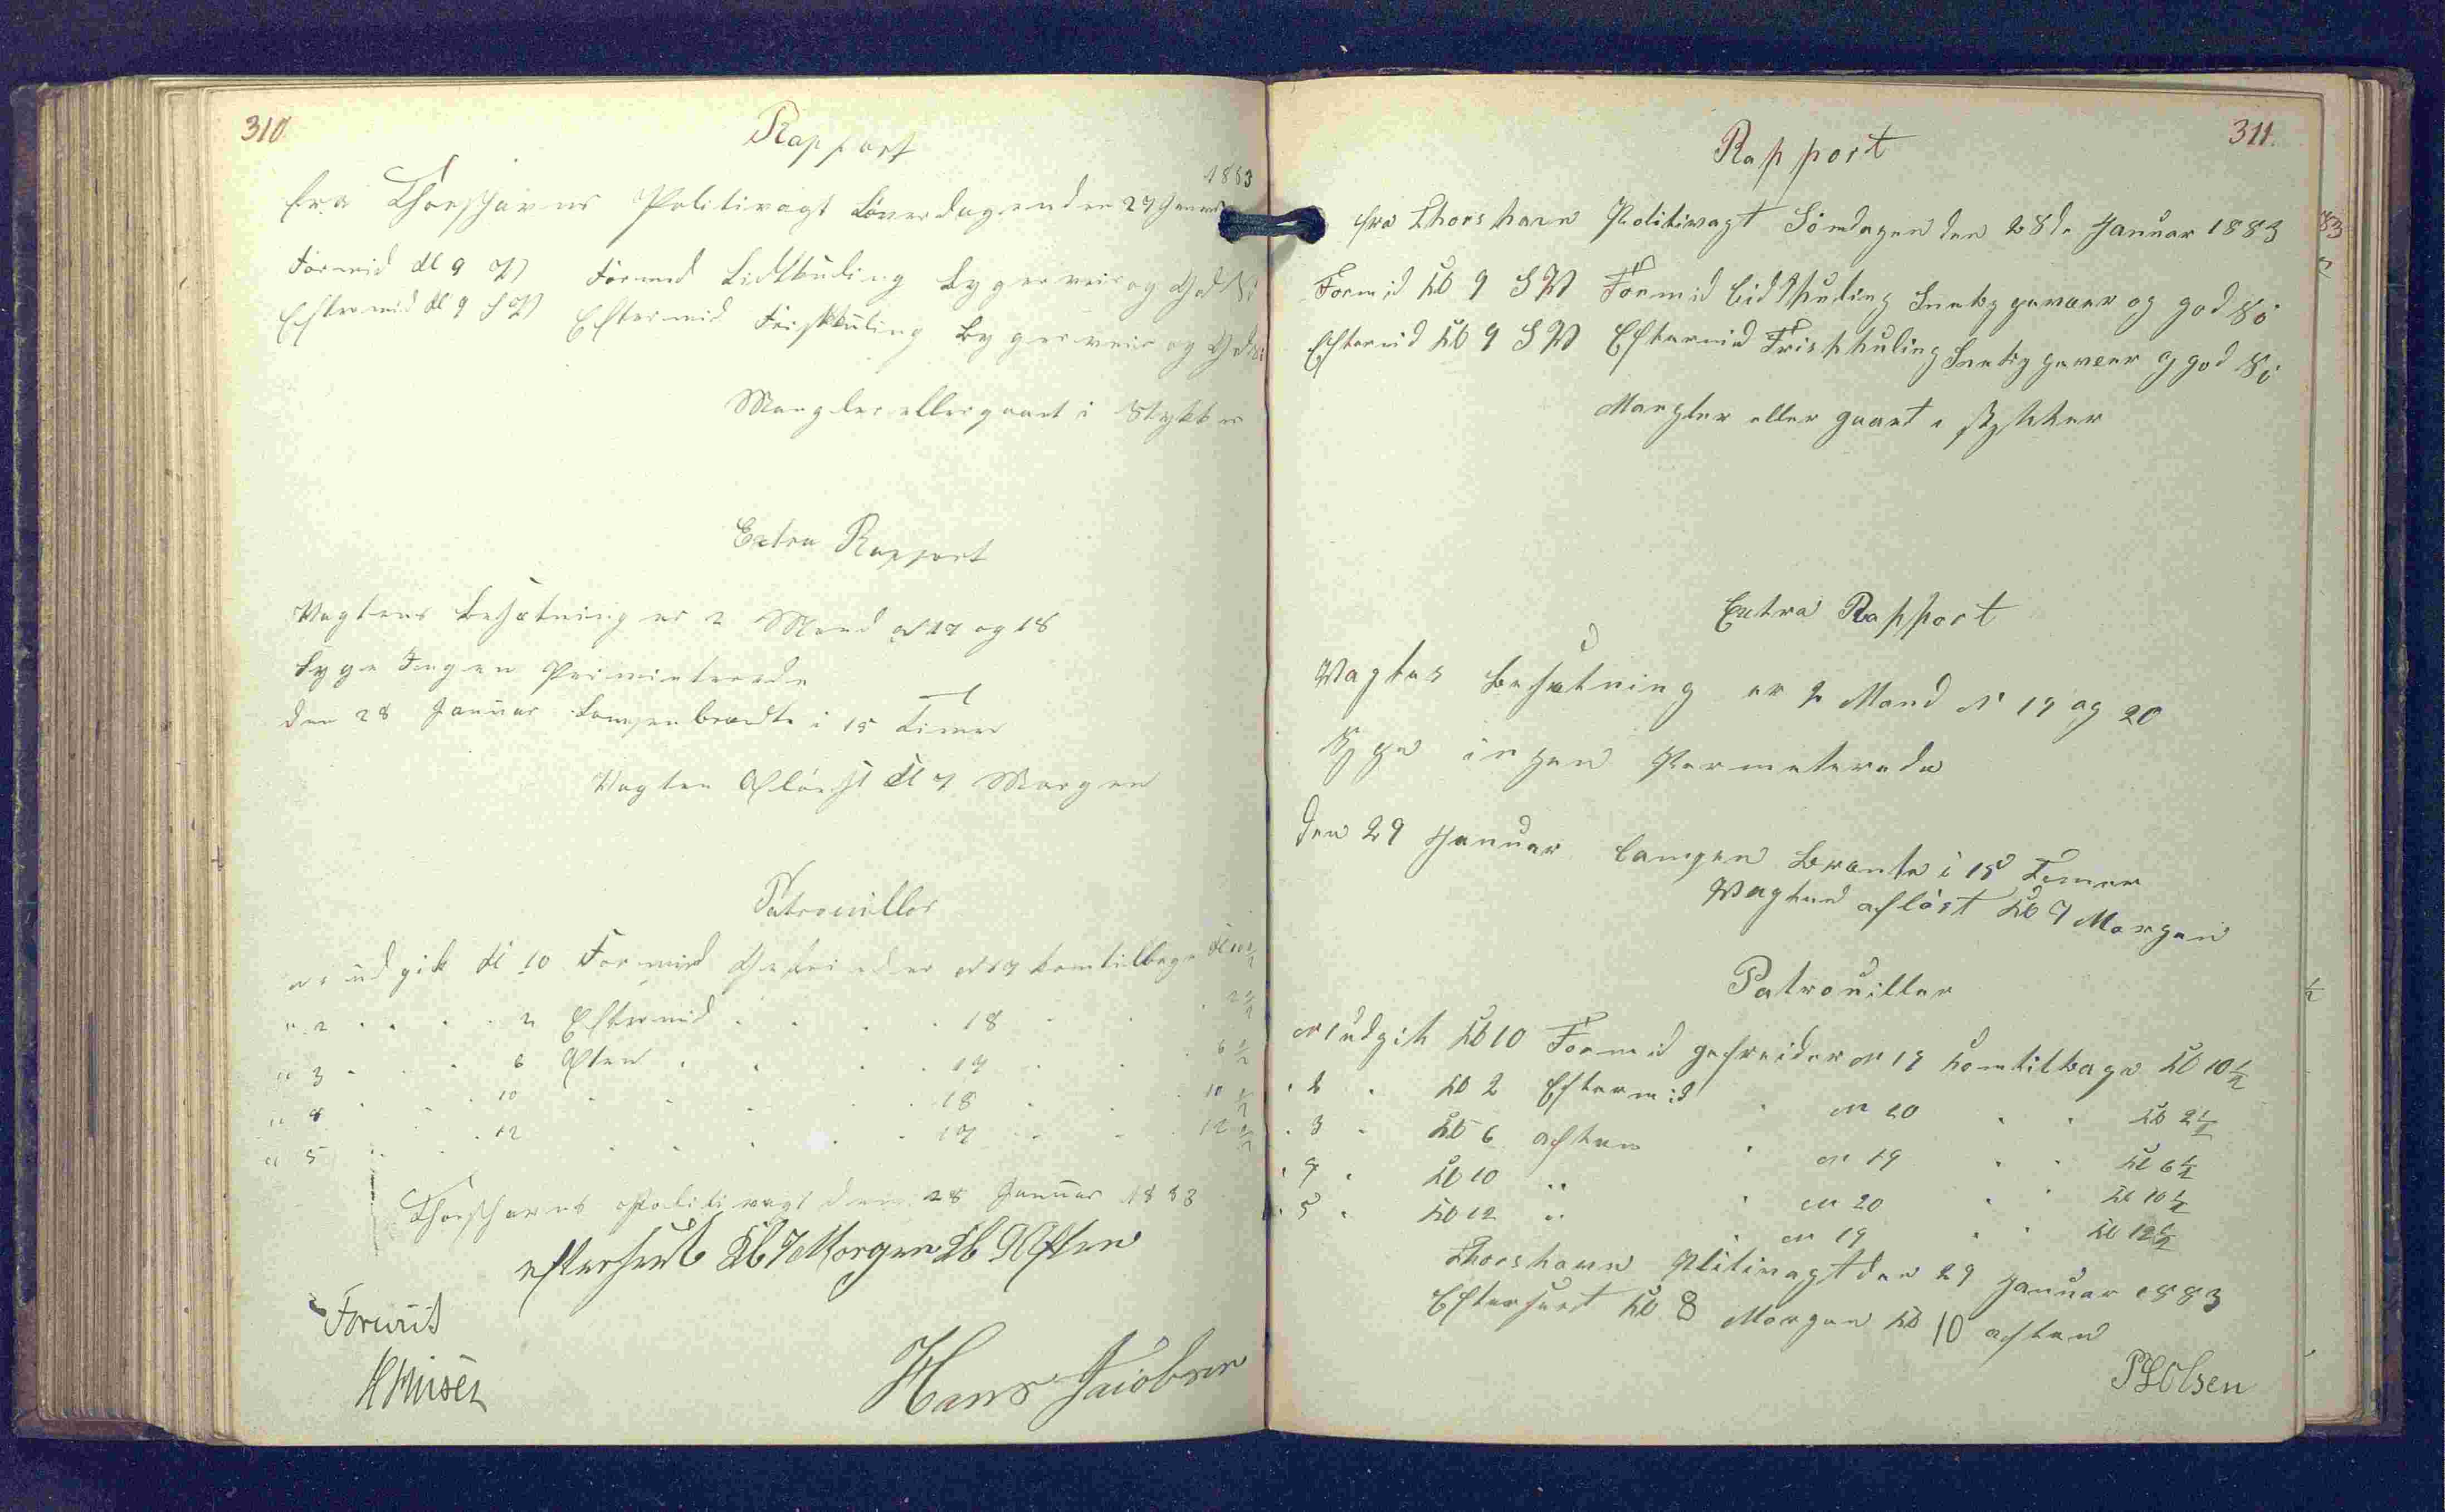 310
Rapport
1883
fra Thorshavns Politivagt Löverdagen den 27 Januar
Formid Kl 9 W Formid Lidtkuling Bygerveir og God Sö
Eftermid Kl 9 SW Eftermid Friskkuling Bygerveir og God Sö
Mangler eller gaaet i Stykker
Extra Rapport
Vagtens Besætning er 2 Mand No 17 og 18
Syge Ingen Permiterede
den 28 Januar Lampen brændte i 15 Timer
Vagten Aflöst Kl 7 Morgen
Patrouiller
No 1 udgik Kl 10 Formid Gefreider No 17 komtilbage Kl 10 1/2
" 2 " " 2 Eftermid " 18 " 2 1/2
" 3 " " 6 Aften " 17 " 6 1/2
" 4 " " 10 " " 18 " 10 1/2
" 5 " " 12 " " 17 " 12 1/2
Thorshavns Politivagt den 28 Januar 1883
efterseet Kl 7 Morgen Kl 9 Aften
Forevist
Hans Jacobsen
311.
Rapport
fra Thorshavn Politivagt Söndagen den 28de Januar 1883
Formid Kl 9 SW Formid Lidtkuling Snebygeveer og god Sö
Eftermid Kl 9 SW Eftermid Friskkuling Snebygeveer og god Sö
Mangler eller gaaet i stykker
Extra Rapport
Vagtes Besætning er 2 Mand No 19 og 20
Syge ingen Permeterede
den 29 Januar Lampen Brænte i 15 Temer
Vagten aflöst Kl 7 Morgen
Patrouiller
No 1 udgik Kl 10 Formid gefreider No 19 komtilbage Kl 10 1/2
" 2 " Kl 2 Eftermid " No 20 " " Kl 2 1/2
" 3 " Kl 6 aften " No 19 " " Kl 6 1/2
" 4 " Kl 10 " " No 20 " " Kl 10 1/2
" 5 " Kl 12 " " No 19 " " Kl 12 1/2
Thorshavn Plitivagt den 29 Januar 1883
Efterseet Kl 8 Morgen Kl 10 aften
Olsen